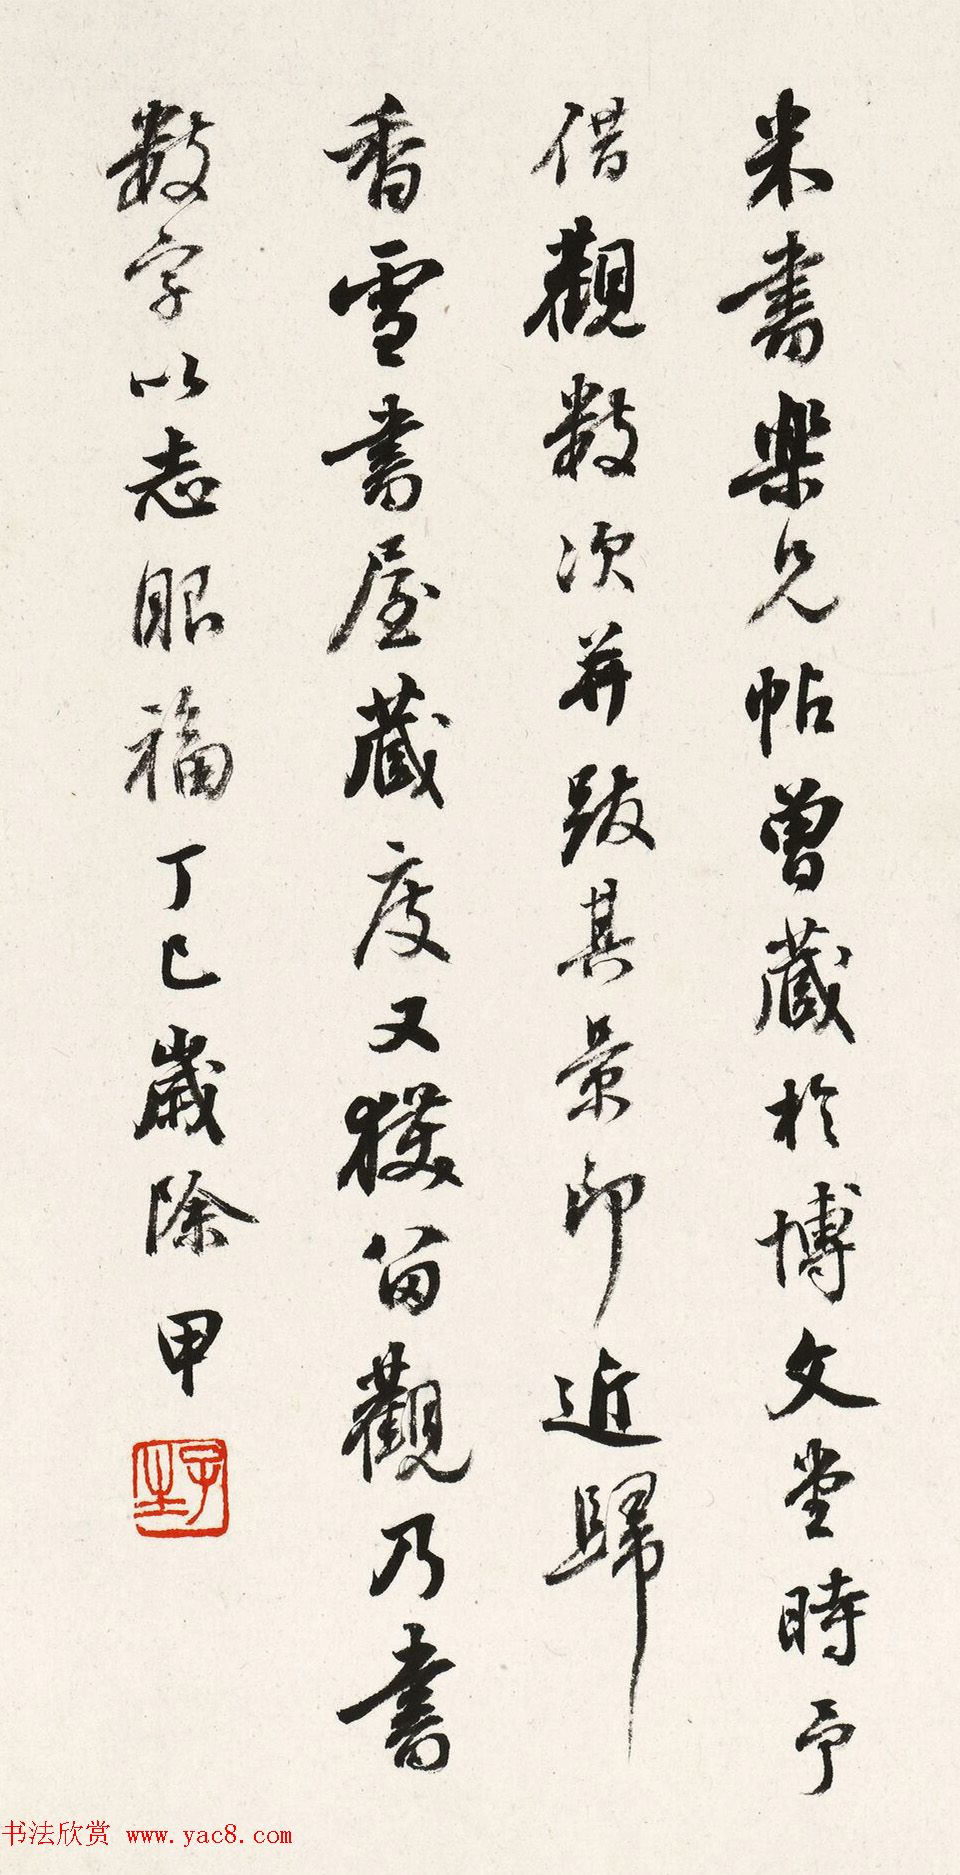 米書樂兄帖曾藏於博文堂時予
借觀數次并跋其景印近歸
香雪書屋藏庋又獲留觀乃書
數字以志眼福丁巳歲除甲
子野
书法欣赏 www.yac8.com